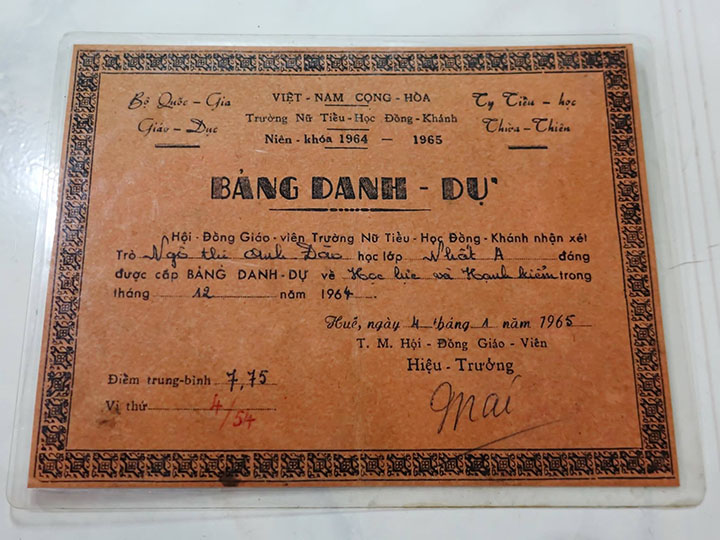 Bộ Quốc - Gia
Giáo - Dục
VIỆT - NAM CỘNG - HÒA
Trường Nữ Tiểu - Học Đồng - Khánh
Niên - khóa 1964 — 1965
Ty Tiểu - học
Thừa - Thiên
BẢNG DANH - DỰ
Hội - Đồng Giáo - viên Trường Nữ Tiểu - Học Đồng - Khánh nhận xét
Trò Ngô thị Anh Đào học lớp Nhất A đáng
được cấp BẢNG DANH - DỰ về Học lực và Hạnh kiểm trong
tháng 12 năm 1964
Huế, ngày 4 tháng 1 năm 1965
T. M. Hội - Đồng Giáo - Viên
Hiệu - Trưởng
Điểm trung - bình 7,75
Vị thứ 4/54
Mai